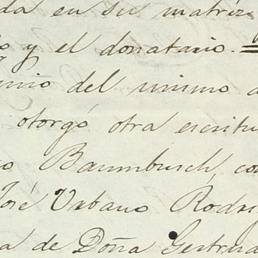 da en su matriz
o y el donatario.
unio del mismo a
otorgó otra escritu
o Baumbusch, co
José Urbano Rodri
a de Doña Gertrud